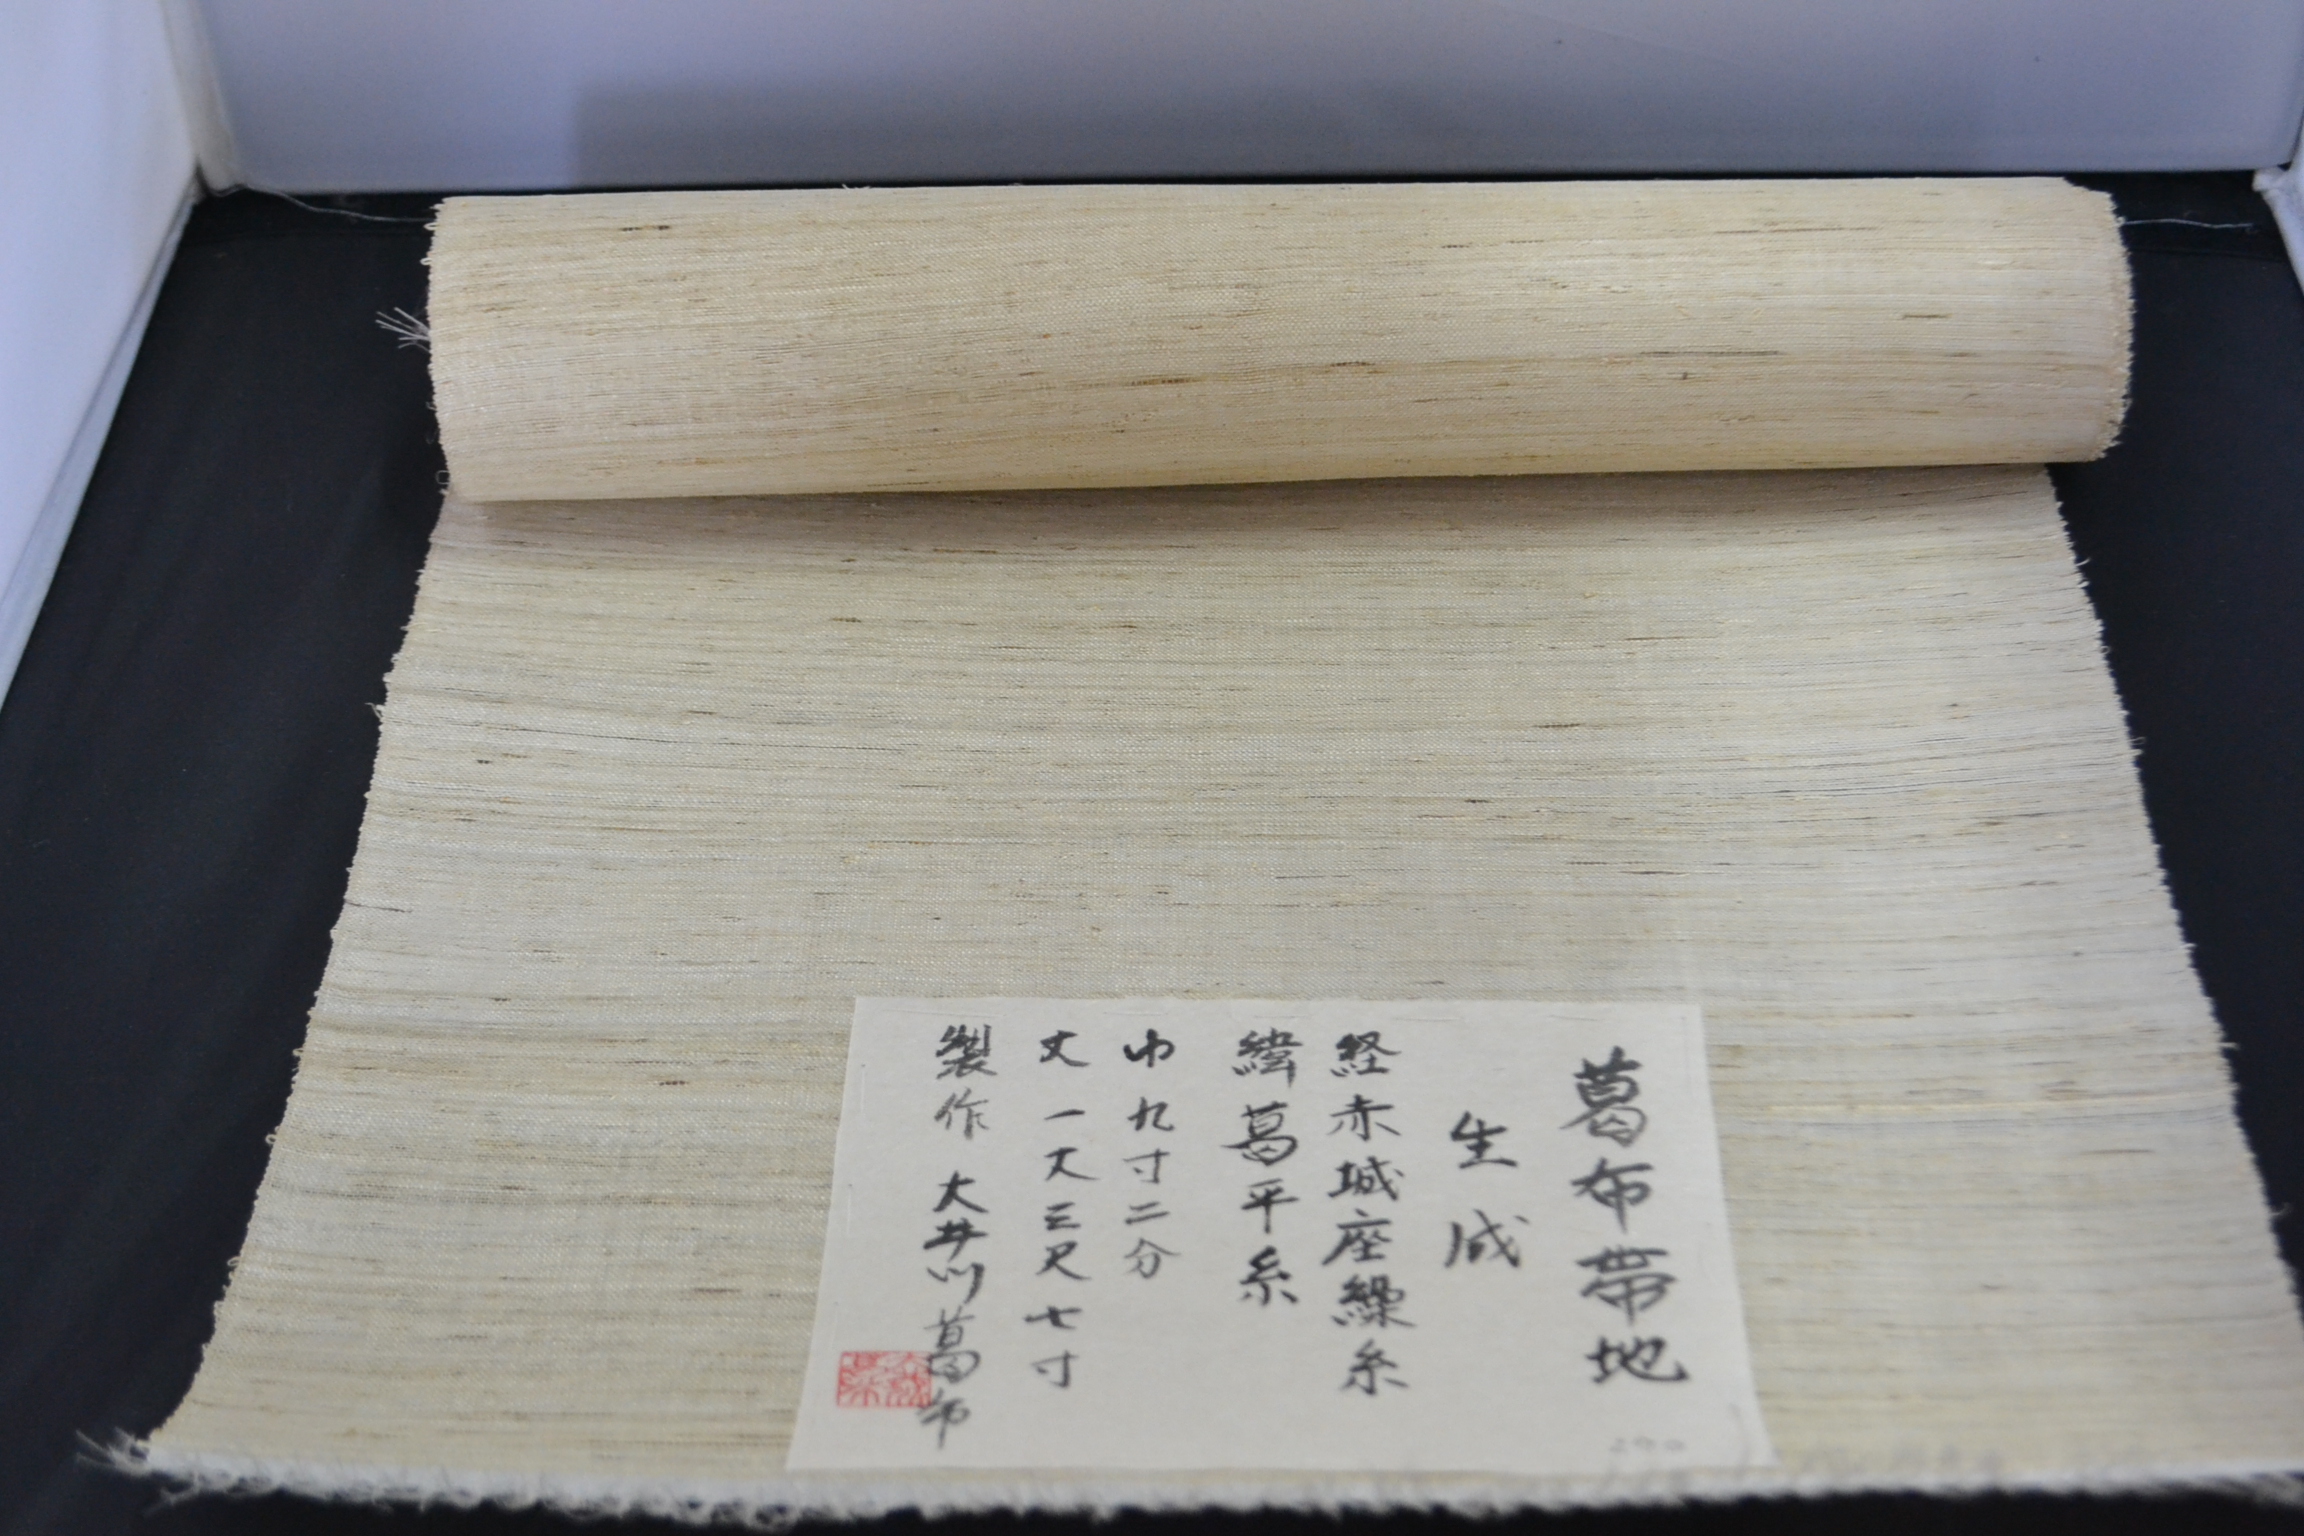 葛布帯地
生成
経赤城座繰糸
緯葛平糸
巾九寸二分
丈一丈三尺七寸
製作 大井川葛布